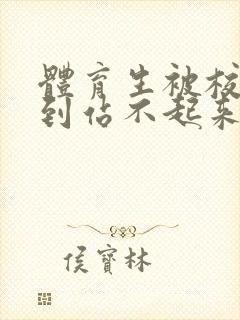 體育生被校
到佔不起來
侯寶林